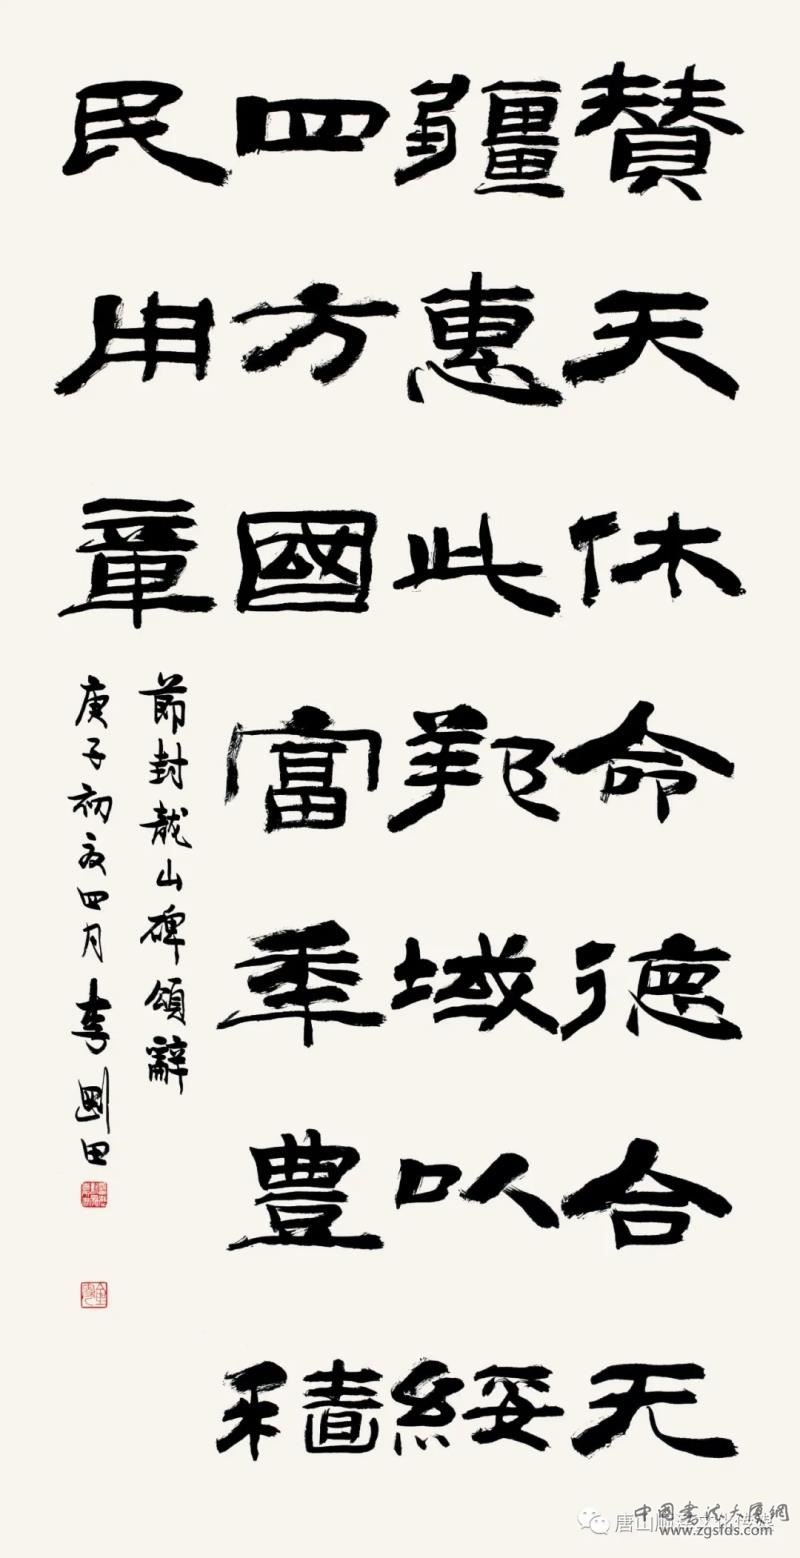 賛天休命德合无
疆惠此邦域以綏
四方國富年豊穡
民用章
節封龍山碑頌辭
庚子初夏四月李剛田
中國書法大厦網
www.zgsfds.com
唐山